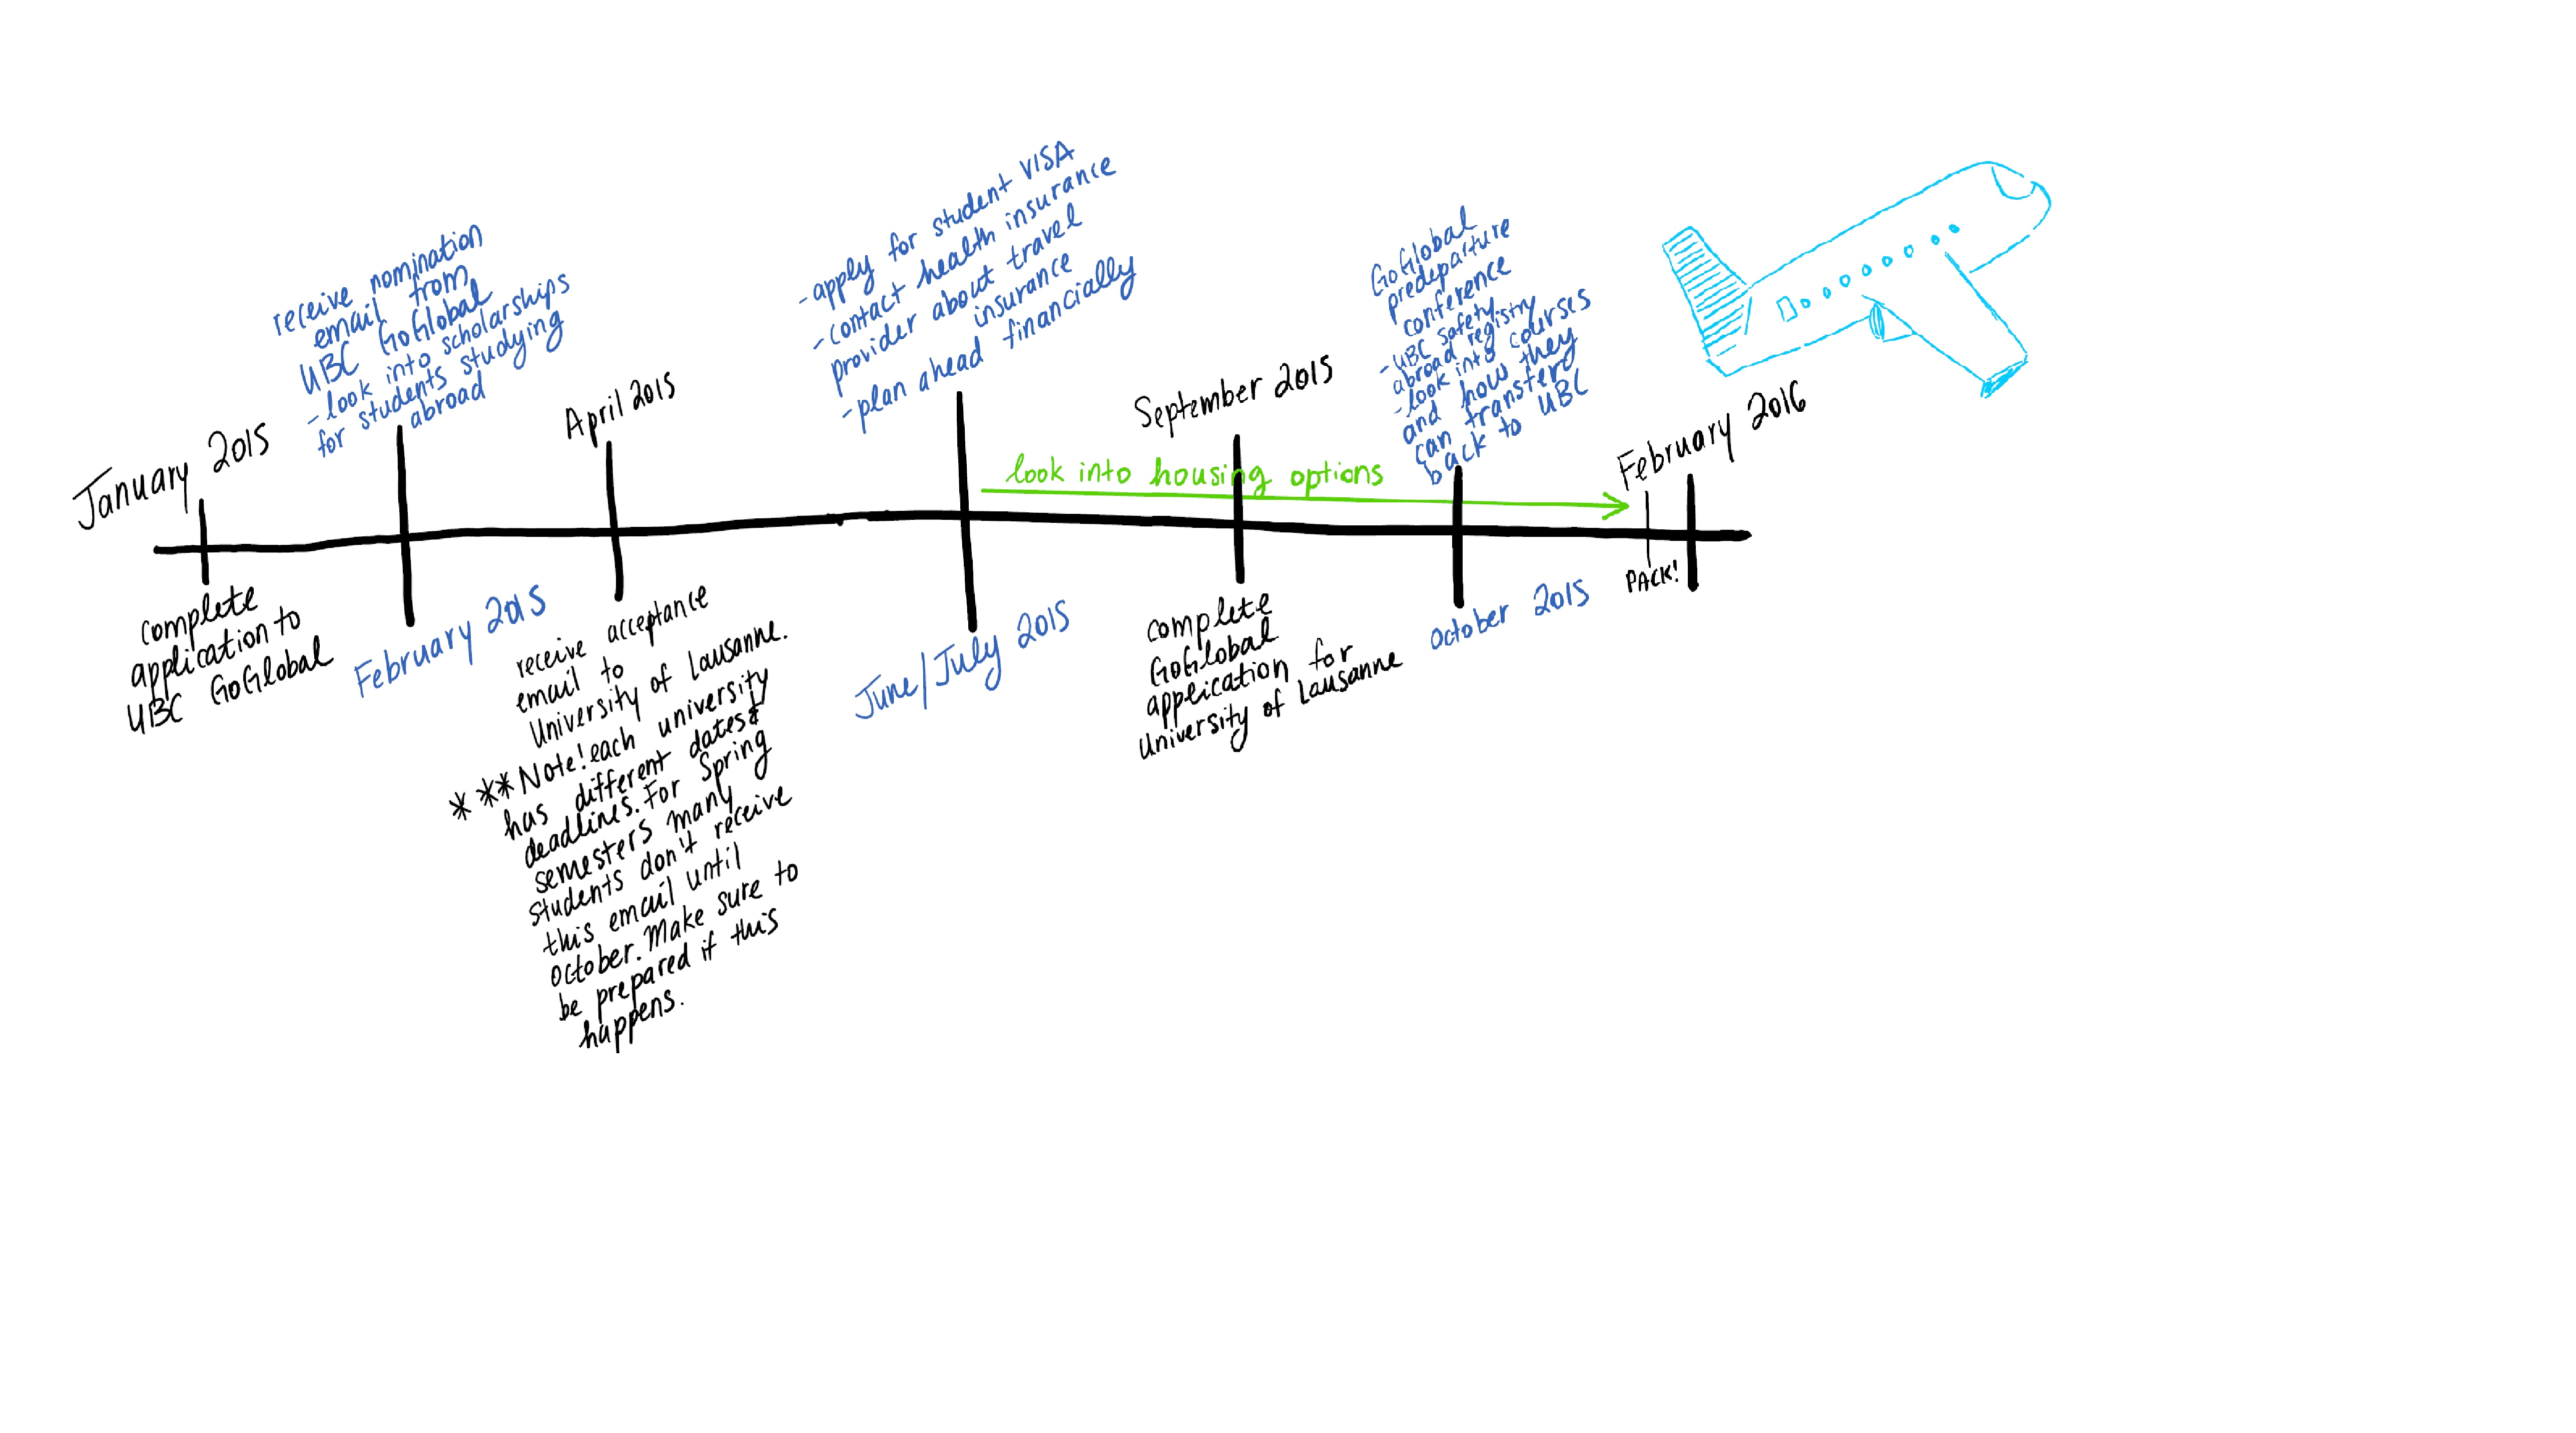 January 2015
complete
application to
UBC GoGlobal
receive nomination
email from
UBC GoGlobal
- look into scholarships
for students studying
abroad
February 2015
April 2015
receive acceptance
email to
University of Lausanne.
***Note! each university
has different dates &
deadlines. For Spring
semesters many
students don't receive
this email until
October. Make sure to
be prepared if this
happens.
- apply for student VISA
- contact health insurance
provider about travel
insurance
- plan ahead financially
June/July 2015
look into housing options
September 2015
complete
GoGlobal
application for
University of Lausanne
GoGlobal
predeparture
conference
- UBC safety
abroad registry
- look into courses
and how they
can transferd
back to UBC
October 2015
PACK!
February 2016